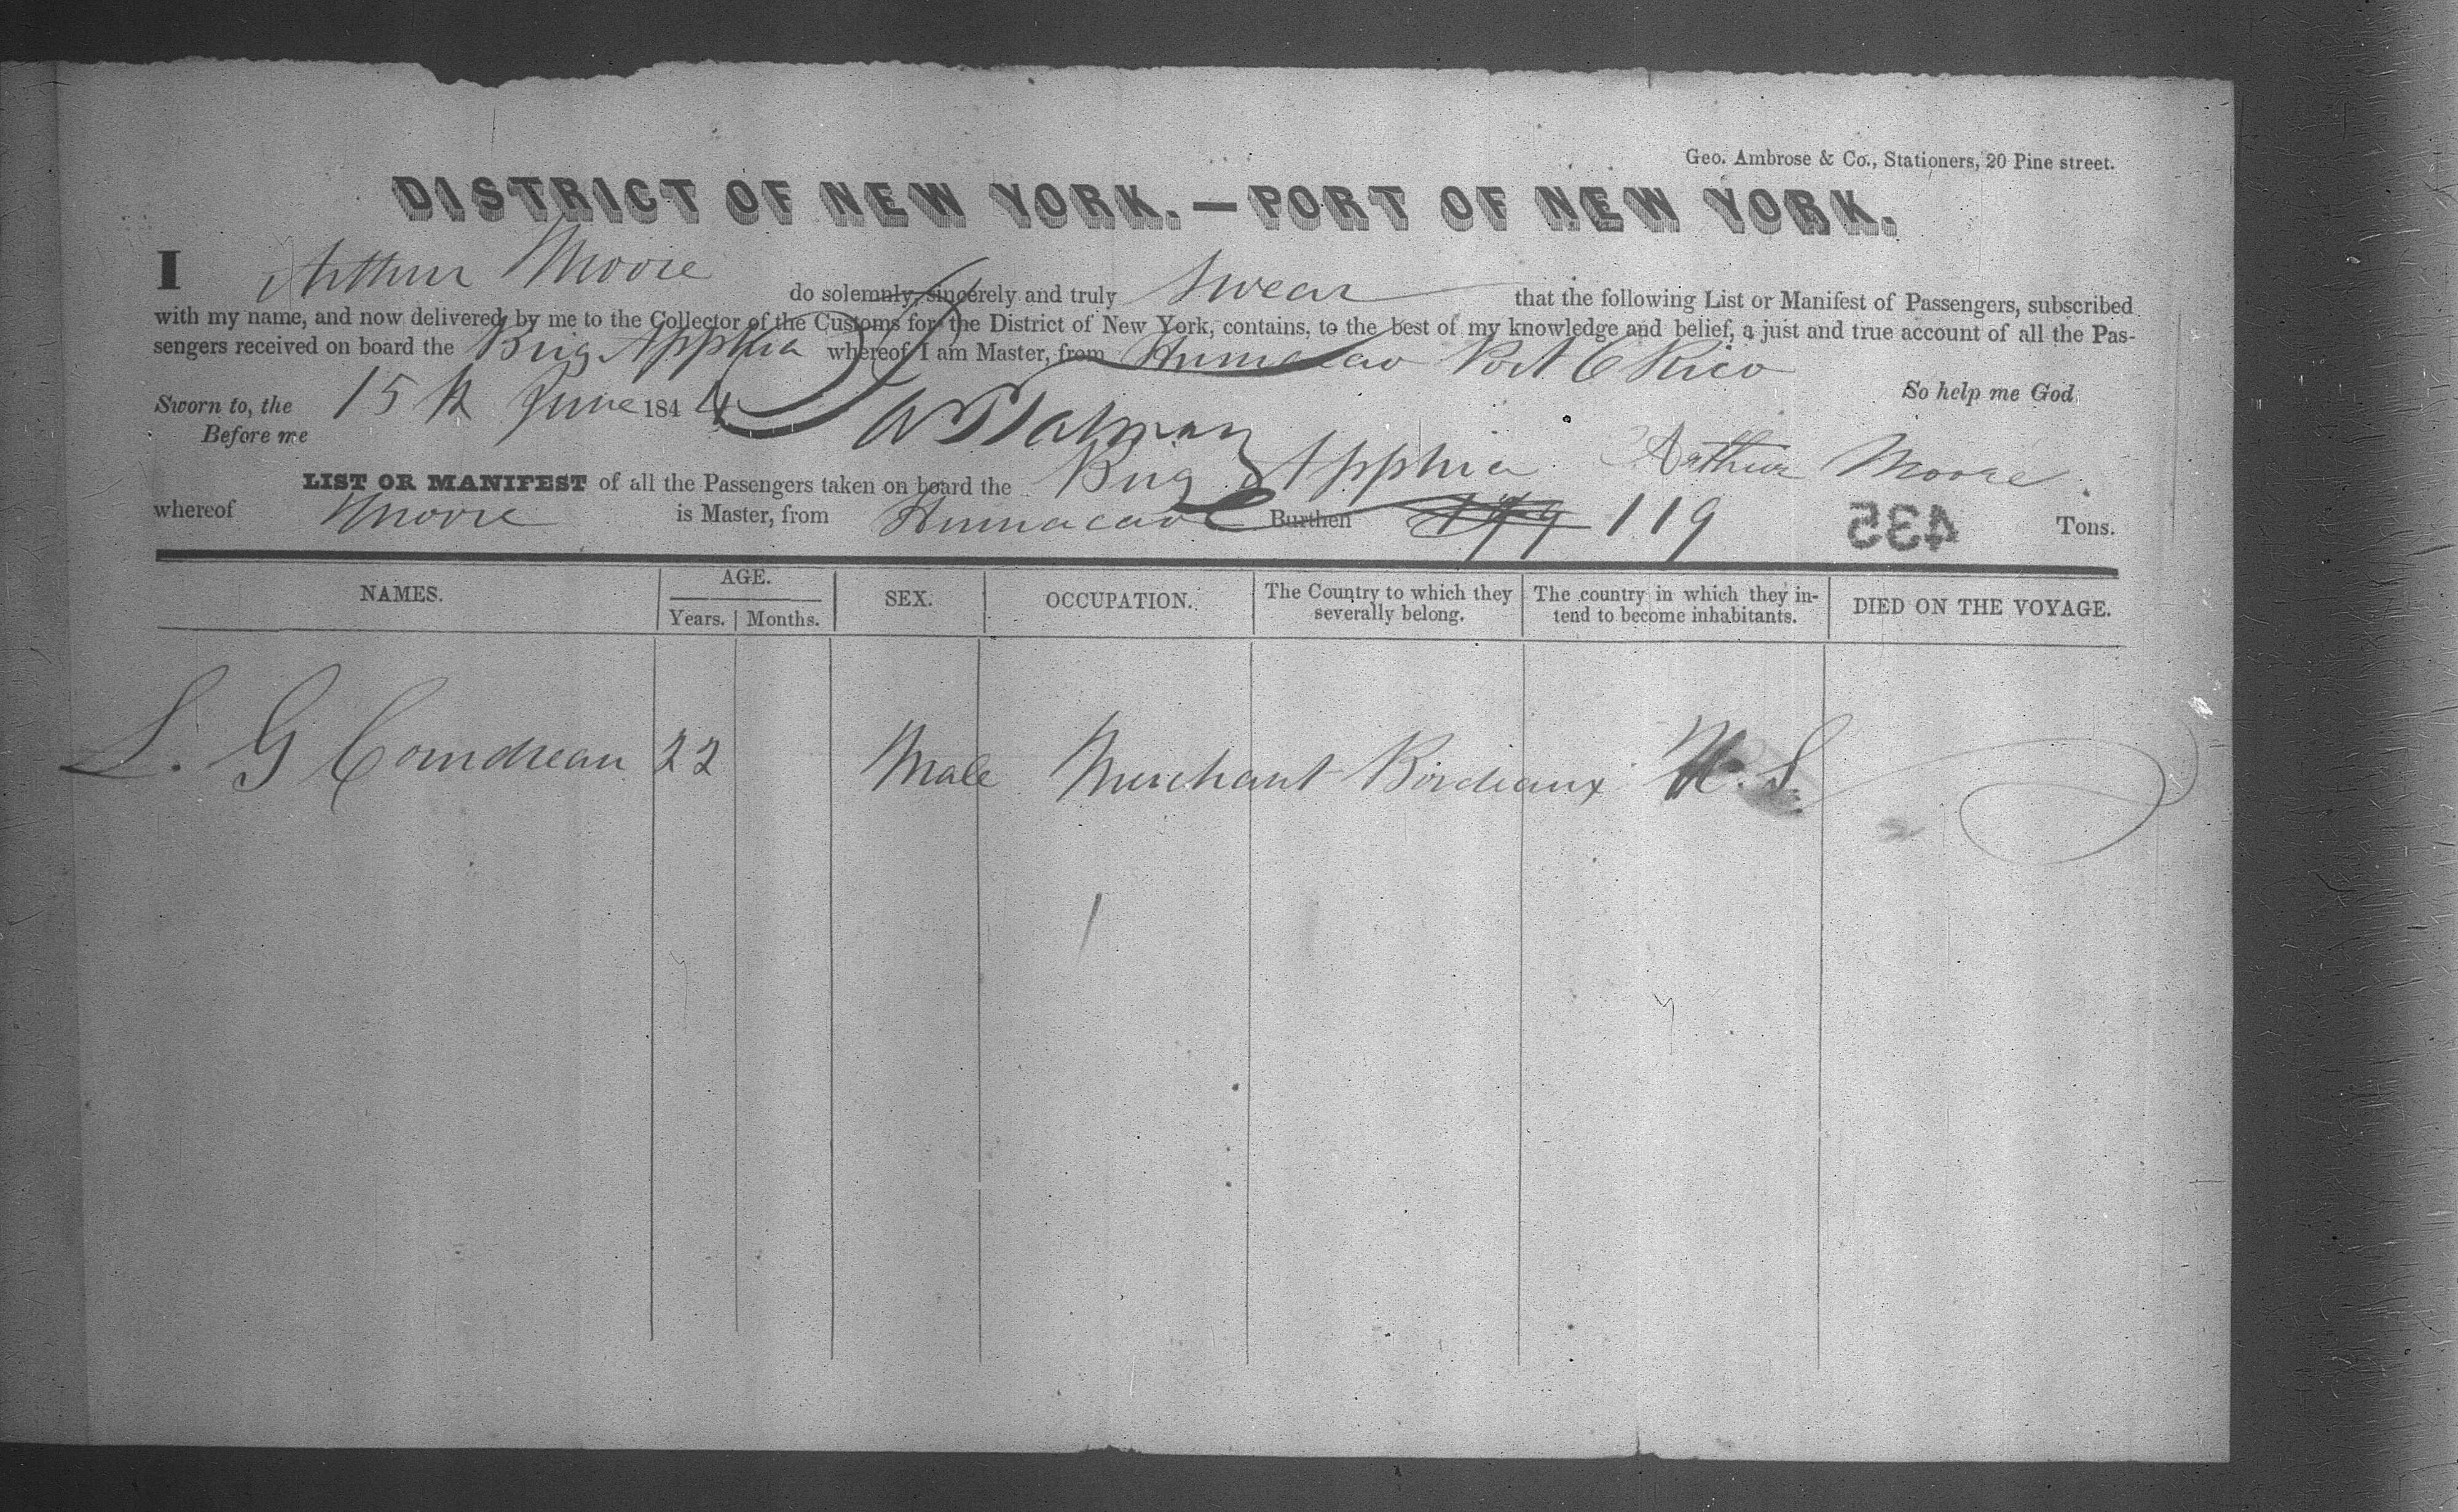 Geo. Ambrose & Co., Stationers, 20 Pine street.
DISTRICT OF NEW YORK.—PORT OF NEW YORK.
I Arthur Moore do solemnly, sincerely and truly swear that the following List or Manifest of Passengers, subscribed
with my name, and now delivered by me to the Collector of the Customs for the District of New York, contains, to the best of my knowledge and belief, a just and true account of all the Pas-
sengers received on board the Brig Apphia whereof I am Master, from Humacao Porto Rico
Sworn to, the 15th June 1844 So help me God
Before me
Arthur Moore
LIST OR MANIFEST of all the Passengers taken on board the Brig Apphia
whereof Moore is Master, from Humacao Burthen 119 435 Tons.
NAMES. AGE. SEX. OCCUPATION. The Country to which they severally belong. The country in which they in-tend to become inhabitants. DIED ON THE VOYAGE.
Years. Months.
L. G 22 Male Merchant Bordeaux